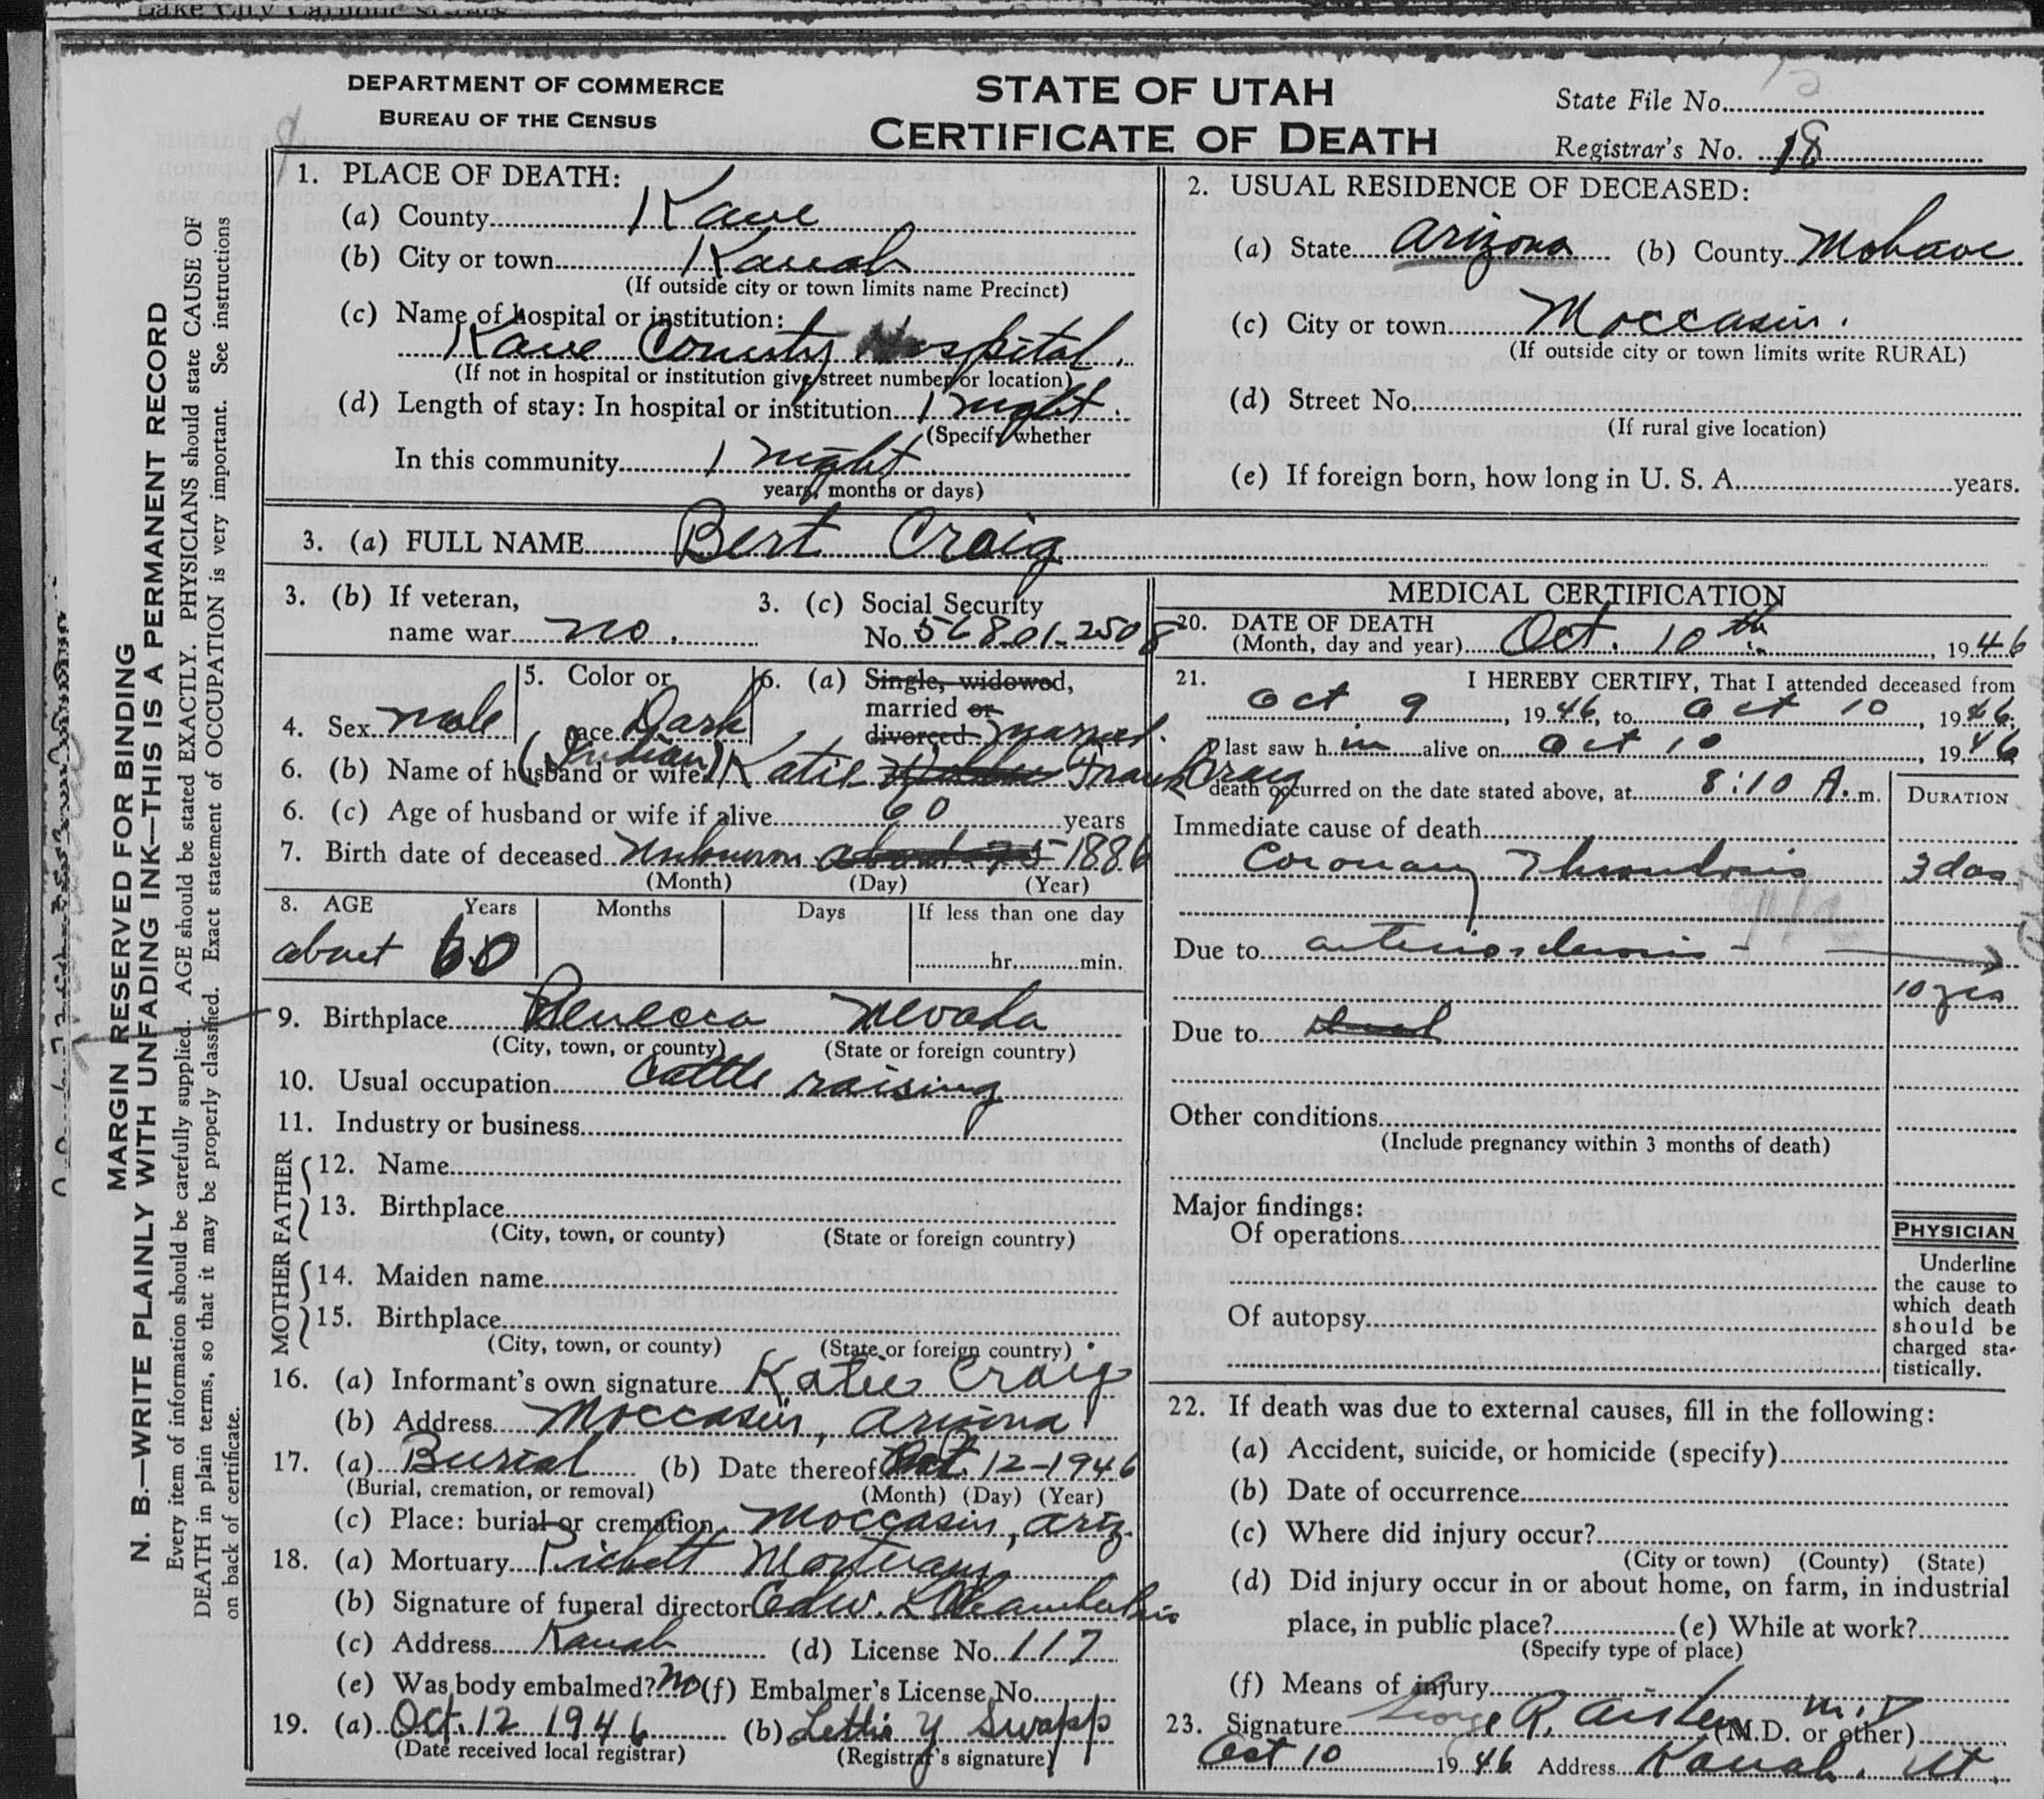 Lake City
DEPARTMENT OF COMMERCE
BUREAU OF THE CENSUS
STATE OF UTAH
CERTIFICATE OF DEATH
State File No.
Registrar's No. 18
MARGIN RESERVED FOR BINDING
N. B.—WRITE PLAINLY WITH UNFADING INK—THIS IS A PERMANENT RECORD
Every item of information should be carefully supplied. AGE should be stated EXACTLY. PHYSICIANS should state CAUSE OF
DEATH in plain terms, so that it may be properly classified. Exact statement of OCCUPATION is very important. See instructions
on back of certificate.
1. PLACE OF DEATH:
(a) County Kane
(b) City or town Kanab
(If outside city or town limits name Precinct)
(c) Name of hospital or institution:
Kane County Hospital.
(If not in hospital or institution give street number or location)
(d) Length of stay: In hospital or institution 1 night.
(Specify whether
In this community 1 night.
years, months or days)
2. USUAL RESIDENCE OF DECEASED:
(a) State Arizona (b) County Mohave
(c) City or town Moccasin.
(If outside city or town limits write RURAL)
(d) Street No.
(If rural give location)
(e) If foreign born, how long in U. S. A. years.
3. (a) FULL NAME Bert Craig
3. (b) If veteran,
name war no.
3. (c) Social Security
No. 568-01-2508
4. Sex male
5. Color or
race Dark
(Indian)
6. (a) Single, widowed,
married or
divorced married.
6. (b) Name of husband or wife Katie Frank Craig
6. (c) Age of husband or wife if alive 60 years
7. Birth date of deceased Unknown about 75 1886
(Month) (Day) (Year)
8. AGE Years Months Days If less than one day
about 60 hr. min.
9. Birthplace Nevada
(City, town, or county) (State or foreign country)
10. Usual occupation Cattle raising
11. Industry or business
FATHER
12. Name
13. Birthplace
(City, town, or county) (State or foreign country)
MOTHER
14. Maiden name
15. Birthplace
(City, town, or county) (State or foreign country)
16. (a) Informant's own signature Katie Craig
(b) Address Moccasin, Arizona
17. (a) Burial (b) Date thereof Oct. 12-1946
(Burial, cremation, or removal) (Month) (Day) (Year)
(c) Place: burial or cremation Moccasin, Ariz.
18. (a) Mortuary Mortuary
(b) Signature of funeral director Edw. L Chamberlain
(c) Address Kanab (d) License No. 117
(e) Was body embalmed? No (f) Embalmer's License No.
19. (a) Oct. 12 1946 (b) Lettie Y Swapp
(Date received local registrar) (Registrar's signature)
MEDICAL CERTIFICATION
20. DATE OF DEATH
(Month, day and year) Oct. 10th, 1946
21. I HEREBY CERTIFY, That I attended deceased from
Oct 9, 1946, to Oct 10, 1946;
I last saw h im alive on Oct 10 1946
death occurred on the date stated above, at 8:10 A. m.
DURATION
Immediate cause of death
Coronary Thrombosis 3 das
Due to arteriosclerosis -
10 yrs
Due to
Other conditions
(Include pregnancy within 3 months of death)
Major findings:
Of operations
Of autopsy
PHYSICIAN
Underline
the cause to
which death
should be
charged sta-
tistically.
22. If death was due to external causes, fill in the following:
(a) Accident, suicide, or homicide (specify)
(b) Date of occurrence
(c) Where did injury occur?
(City or town) (County) (State)
(d) Did injury occur in or about home, on farm, in industrial
place, in public place? (e) While at work?
(Specify type of place)
(f) Means of injury
23. Signature George R. Aiken M.D (M.D. or other)
Oct 10 1946 Address Kanab. Ut.